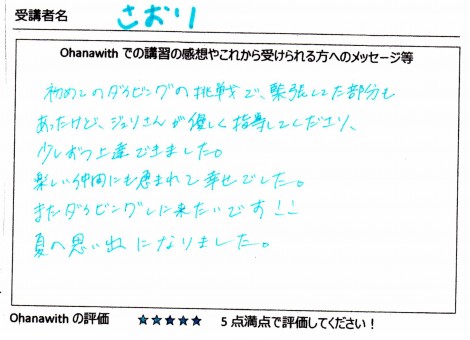 受講者名 さおり
Ohanawith での講習の感想やこれから受けられる方へのメッセージ等
初めてのダイビングの挑戦で、緊張してた部分も
あったけど、ジュリさんが優しく指導してくださり、
少しずつ上達できました。
楽しい仲間にも恵まれて幸せでした。
またダイビングしに来たいです!!
夏の思い出になりました。
Ohanawith の評価 ★★★★★ 5 点満点で評価してください!